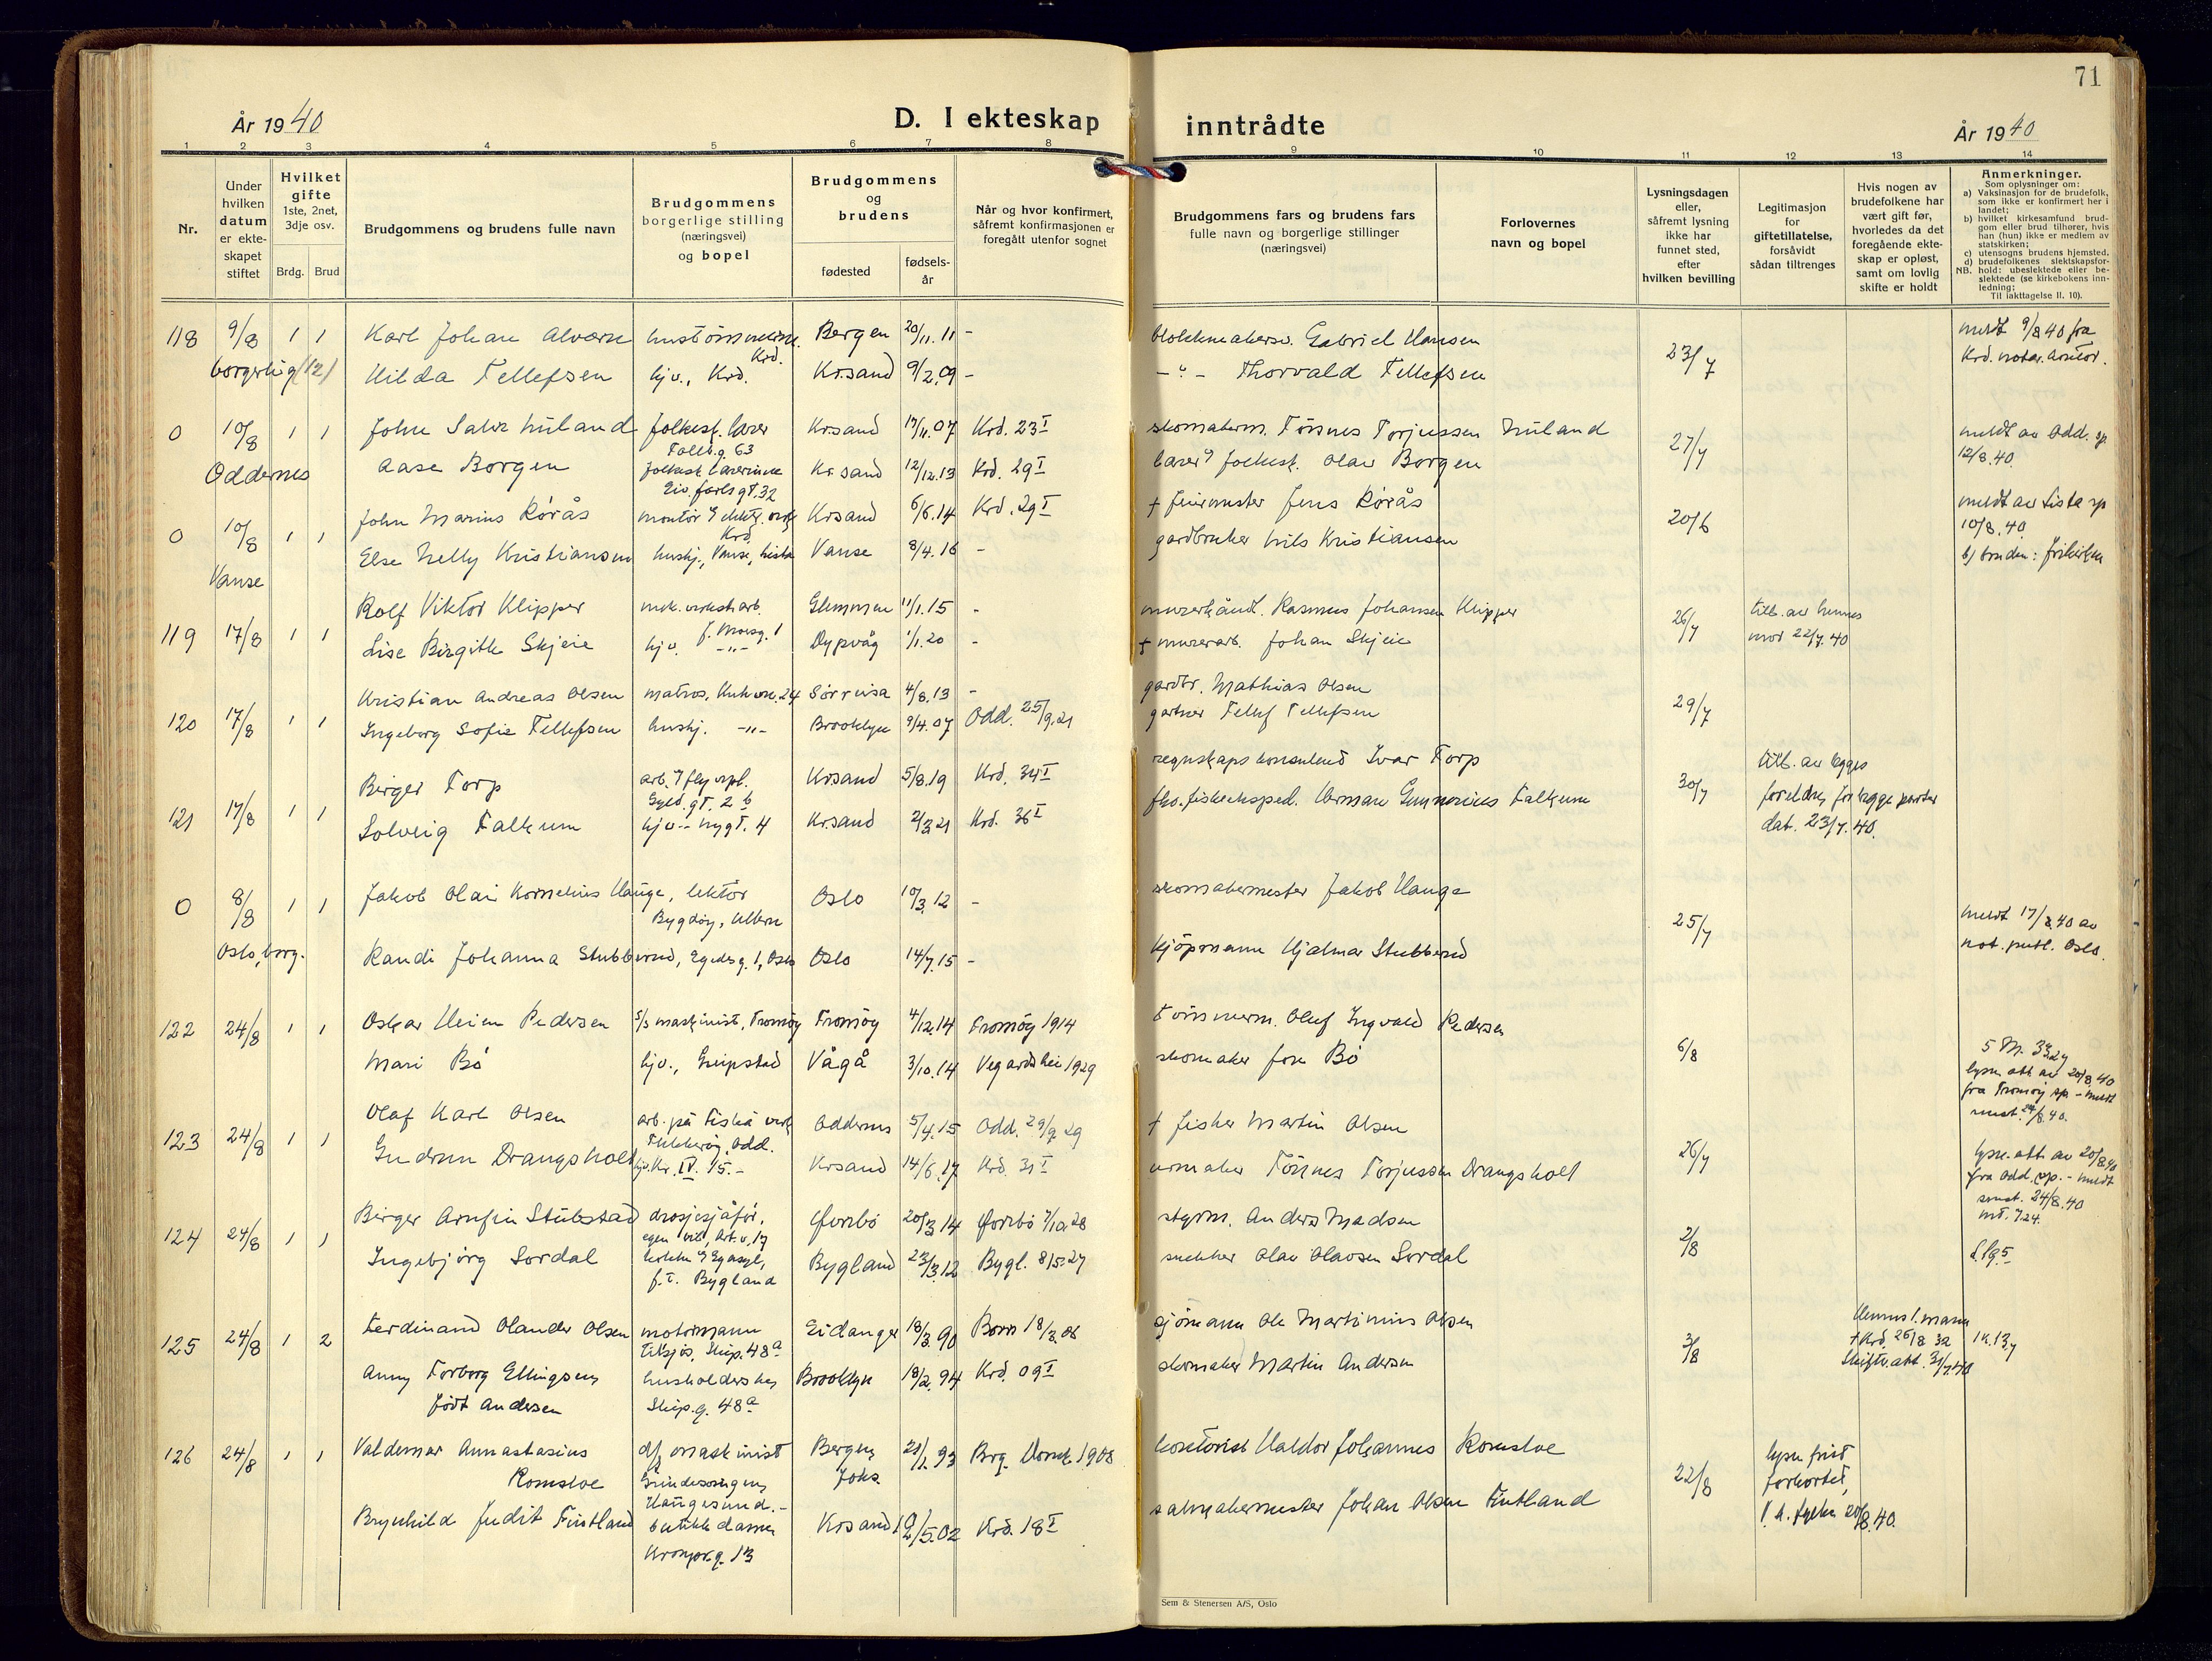 71
År 1940
D. I ekteskap
inntrådte
År 1940
1 2 3 4 5 6 7 8 9 10 11 12 13 14
Nr.
Under
hvilken
datum
er ekte-
skapet
stiftet
Hvilket
gifte
1ste, 2net,
3dje osv.
Brdg. Brud
Brudgommens og brudens fulle navn
Brudgommens
borgerlige stilling
(næringsvei)
og bopel
Brudgommens
og
brudens
fødested
fødsels-
år
Når og hvor konfirmert,
såfremt konfirmasjonen er
foregått utenfor sognet
Brudgommens fars og brudens fars
fulle navn og borgerlige stillinger
(næringsvei)
Forlovernes
navn og bopel
Lysningsdagen
eller,
såfremt lysning
ikke har
funnet sted,
efter
hvilken bevilling
Legitimasjon
for
giftetillatelse,
forsåvidt
sådan tiltrenges
Hvis nogen av
brudefolkene har
vært gift før,
hvorledes da det
foregående ekte-
skap er opløst,
samt om lovlig
skifte er holdt
Anmerkninger.
Som oplysninger om:
a) Vaksinasjon for de brudefolk,
som ikke er konfirmert her i
landet;
b) hvilket kirkesamfund brud-
gom eller brud tilhører, hvis
han (hun) ikke er medlem av
statskirken;
c) utensogns brudens hjemsted.
d) brudefolkenes slektskapsfor-
NB. hold: ubeslektede eller be-
slektede (se kirkebokens inn-
ledning;
Til iakttagelse II. 10).
118 9/8 1 1 Karl Johan Alværn
Krd. Bergen 20/11.11 - Gabriel Hansen
23/7 meldt 9/8 40 fra
borgerlig (12) Hilda Tellefsen hjv., Krd. Krsand 9/2.09 - -"- Thorvald Tellefsen
0 10/8 1 1 John Nuland folkesk. lærer Krsand 17/11.07 Krd. 23 I skomakerm. Tönnes Torjussen Nuland
27/7 meldt av Odd. sp
12/8.40.
Oddernes Aase Borgen folkesk. lærerinne Krsand 12/12.13 Krd. 29 I lærer folkesk. Olav Borgen
0 10/8 1 1 John Marius Rörås montör Krd. Krsand 6/6.14 Krd. 29 I + feiermester Jens Rörås
20/6 meldt av Lista sp
10/8.40.
b) bruden: frikirken
Vanse Else Nelly Kristiansen hushj., Vanse, Lista Vanse 8/4.16 - gardbruker Nils Kristiansen
119 17/8 1 1 Rolf Viktor Klipper mek. verkst.arb. Glemmen 11/1.15 - Rasmus Johansen Klipper
26/7 till. av hennes
mor 22/7.40
Lise Birgitte Skjeie hjv. -"- Dypvåg 1/1.20 - + murerarb. Johan Skjeie
120 17/8 1 1 Kristian Andreas Olsen matros, 24 Sörreisa 4/8.13 - gardbr. Mathias Olsen
29/7
Ingeborg Sofie Tellefsen hushj. -"- Brooklyn 9/4.07 Odd. 25/9.21 gartner Tellef Tellefsen
121 17/8 1 1 Birger Torp Krsand 5/8.19 Krd. 34 I regnskapskonsulent Ivar Torp
30/7 till. av begges
foreldre, for begge parter
dat. 23/7.40.
Solveig Falkum hjv. -- nygt. 4 Krsand 2/3.21 Krd. 36 I Herman Gunnerius Falkum
0 8/8 1 1 Jakob Olai Kornelius Hauge, lektör
Bygdöy, Ullern Oslo 10/3.12 - skomakermester Jakob Hauge
25/7 meldt 17/8.40 av
not. publ. Oslo.
Oslo, borg. Randi Johanna Stubberud, Egedesg. 1, Oslo Oslo 14/7.15 - kjöpmann Hjalmar Stubberud
122 24/8 1 1 Oskar Heien Pedersen s/s maskinist, Tromöy Tromöy 4/12.14 Tromöy 1914 tömmerm. Oluf Ingvald Pedersen
6/8
Mari Bö hjv., Greipstad Vågå 3/10.14 Vegårdshei 1929 skomaker Jon Bö
lysn. att av 20/8.40
fra Tromöy sp - meldt
samt. 24/8.40.
123 24/8 1 1 Olaf Karl Olsen arb. på Fiskå verk
Odd. Oddernes 5/4.15 Odd. 29/9 29 + fisker Martin Olsen
26/7 lysn. att av 20/8.40
fra Odd. sp. - meldt
samt. 24/8.40
Gudrun Drangsholt hjv. Kr. IV. 15.- Krsand 14/6.17 Krd. 31 I urmaker Tönnes Torjussen Drangsholt
124 24/8 1 1 Birger Arnfin Stubstad drosjesjåför, 20/3 14 7/10.28 styrm. Anders Madsen
2/8
Ingebjörg Sordal
f.t. Bygland Bygland 23/3.12 Bygl. 8/5.27 snekker Olav Olavsen Sordal
125 24/8 1 2 Ferdinand Olander Olsen motormann
Skip. 48 a Eidanger 18/3.90 18/3.06 sjömann Ole Martinius Olsen
3/8 Hennes 1. mann
+ Krd. 26/8 32
Skifte att. 31/7.40
Anny Torborg Ellingsen
födt Andersen husholderske,
Skip. g. 48 a Brooklyn 18/2.94 Krd. 09 I skomaker Martin Andersen
126 24/8 1 1 Valdemar Annastasius
Romsloe d/s maskinist
Haugesund.- Bergen,
Joh. 21/1.93 Brg. Domk. 1908 kontorist Haldor Johannes Romsloe
22/8 lysn. frist
forkortet,
20/8.40.
Brynhild Judit Fintland butikkdame
Kronpr.g. 13 Krsand 19/5.02 Krd. 18 I salmakermester Johan Olsen Fintland
Sem & Stenersen A/S, Oslo